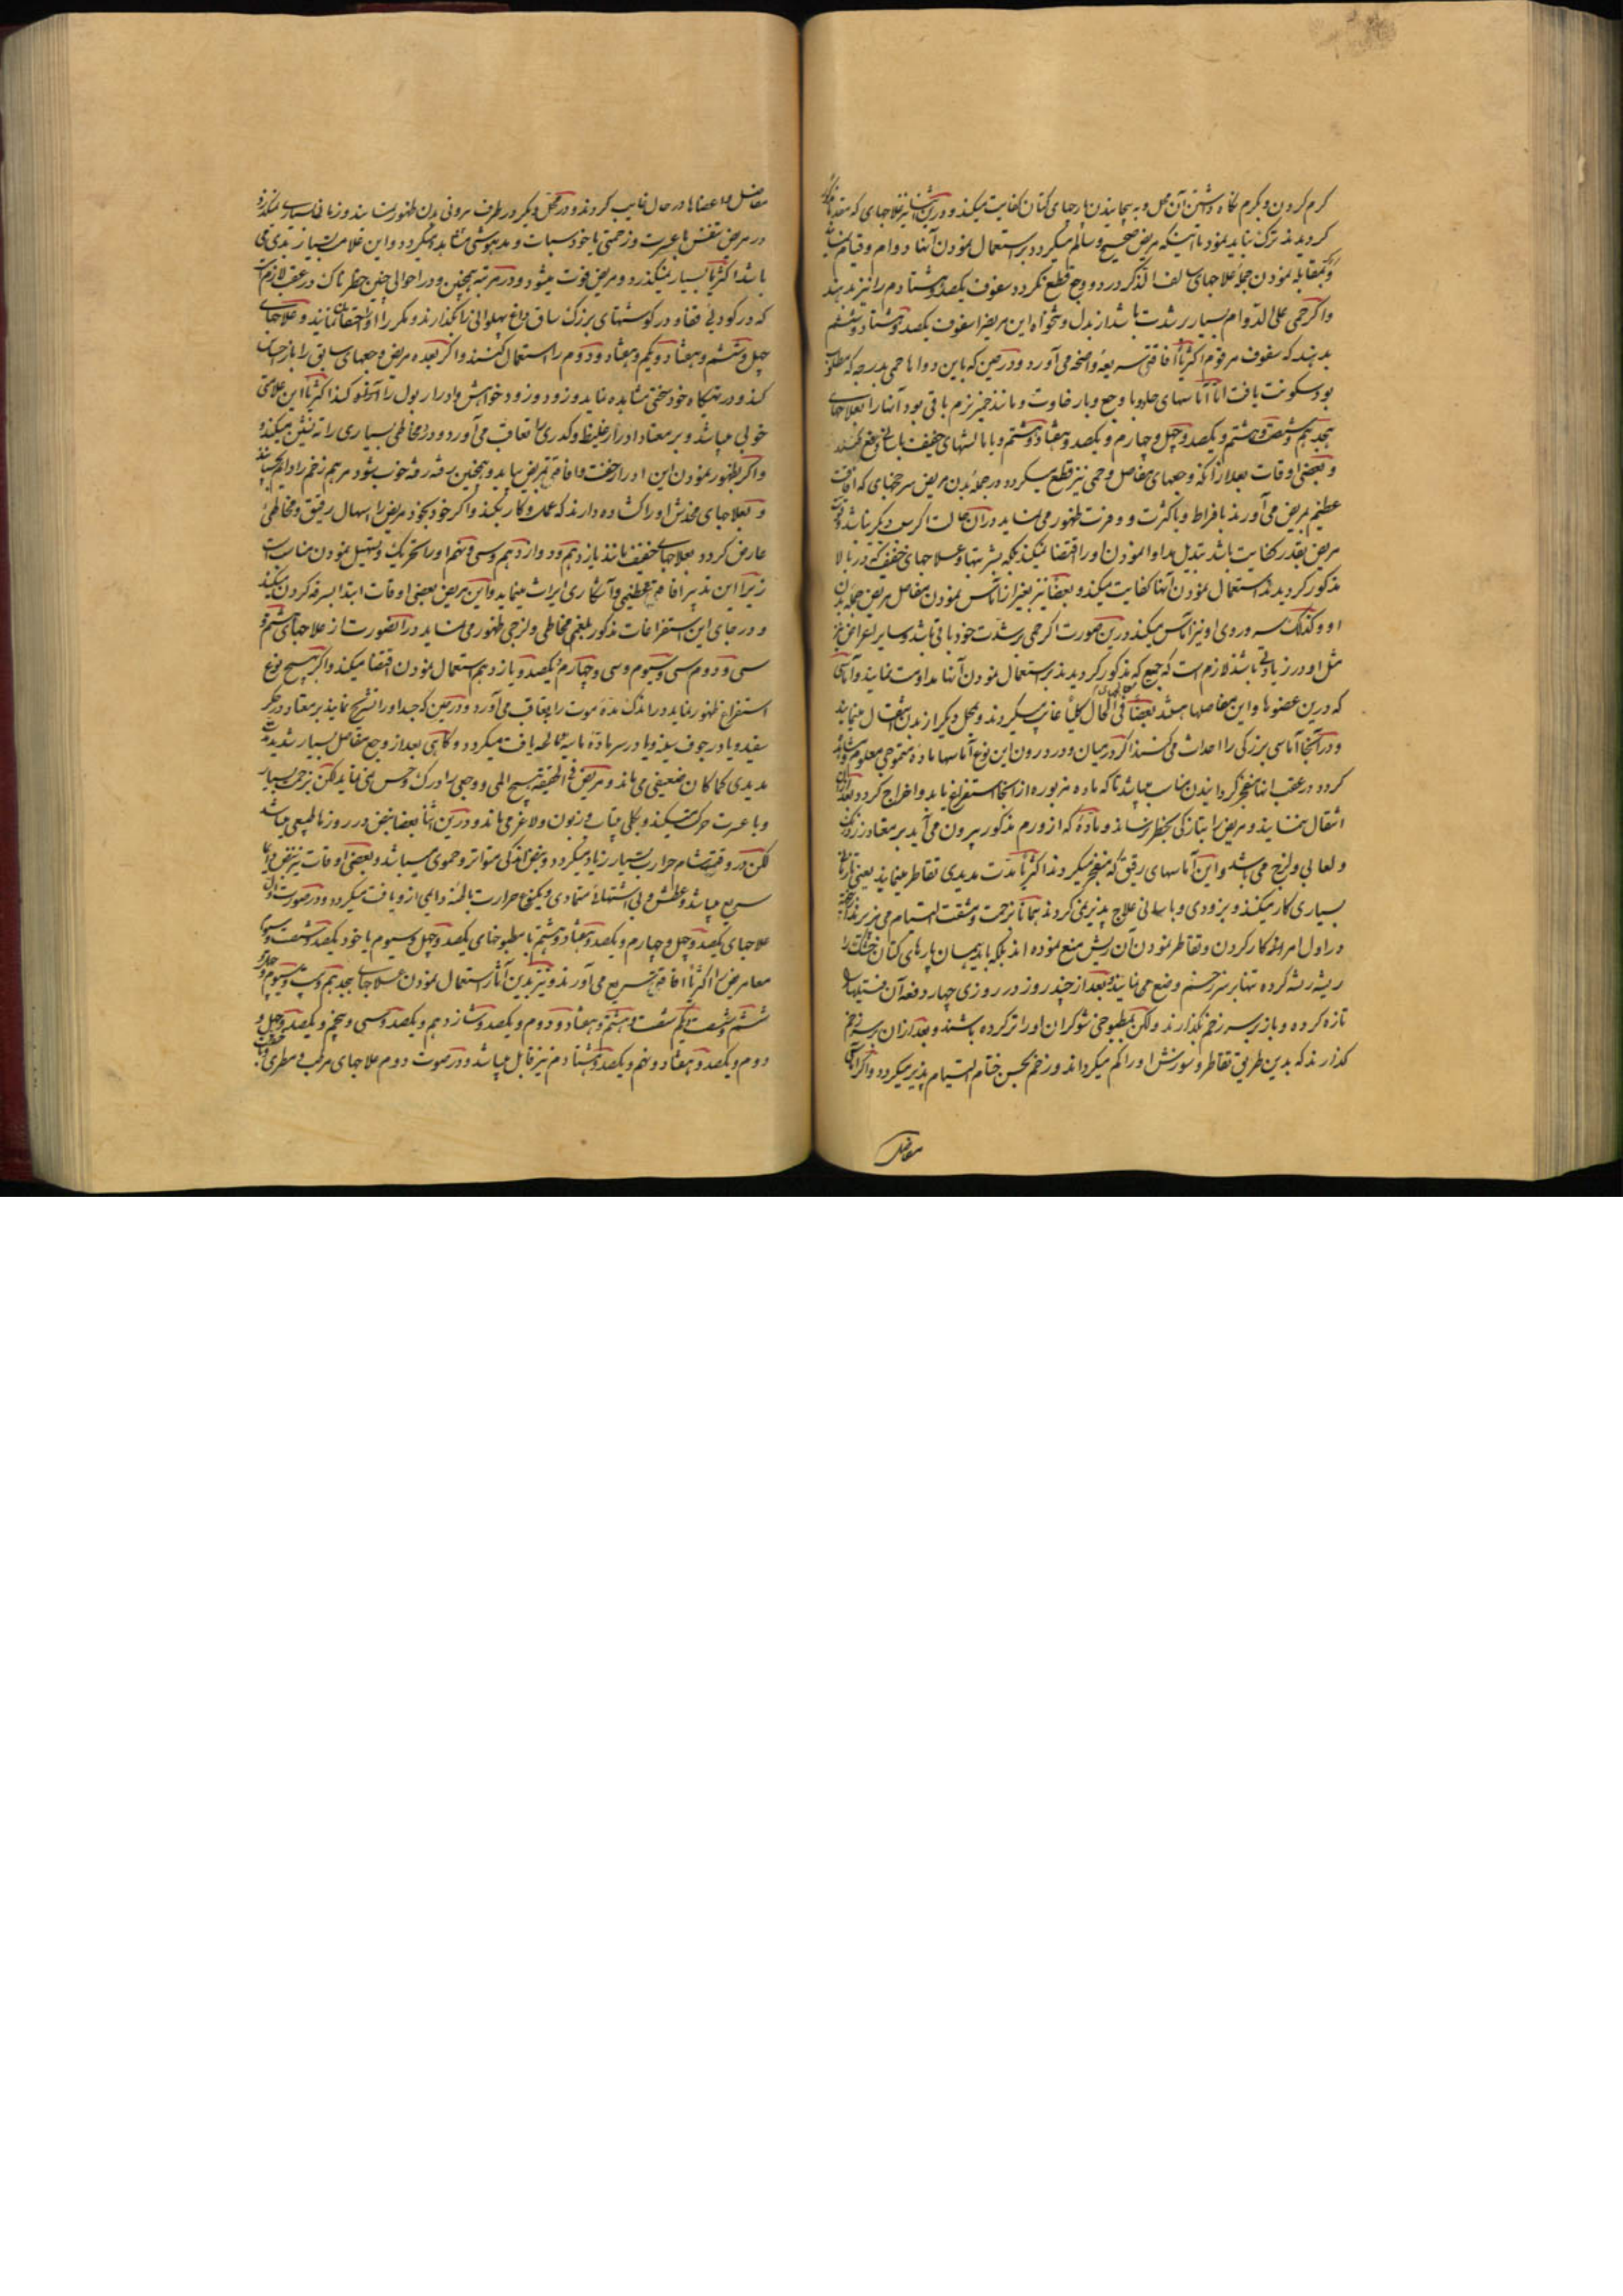 کرم کردن و بکرم نکاه داشتن آن محل و به پیچانیدن پارچهای کتان کفایت میکند و درین اثنا نیز علاجهای که مقدما ذکر
کردیدند ترک نباید نمود تا اینکه مریض صحیح و سالم میکردد بر استعمال نمودن آنها دوام و قیام نمایند
و بمقابله نمودن جمله علاجهای سالف الذکر درد و وجع قطع نکردد سفوف یکصد و هشتادم را نیز بدهند
واکر حمی علی الدوام بسیار بر شدت باشد از بدل و تنخواه این مریض را سفوف یکصد و هشتاد و ششم
بدهند که سفوف مرقوم اکثریا افاقتی سریعه و واضحه می آورد و در حین که باین دوا ها حمی بدرجه که مطلوب
بود سکونت یافت اما آماسهای جلد با وجع و بار خاوت و مانند خمیر نرم باقی بود آنها را بعلاجهای
هجدهم و شصت و هشتم و یکصد و چهل و چهارم و یکصد و هفتاد و هشتم و با مالشهای خفیف باسانی دفع کنند
و بعضی اوقات بعد از آنکه وجعهای مفاصل و حمی نیز قطع میکردد در جمله بدن مریض سرخجهای که افاقت
عظیم بمریض می آورند با فراط و با کثرت و وفرت ظهور می نماید در ان حالت اکر سبب دیکر نباشد و قوت
مریض بقدر کفایت باشد تبدیل مداوا نمودن او را اقتضا نمیکند بلکه بشربتها و علاجهای خفیف که در بالا
مذکور کردیدند استعمال نمودن آنها کفایت میکند و بعضا نیز بغیر از آماس نمودن مفاصل مریض جمله بدن
او و کذلک سر و روی او نیز آماس میکند درین صورت اکر حمی بر شدت خود باقی باشد و سایر اعراض نیز
مثل او در زیادتی باشد لازم است که جمیع که مذکور کردیدند بر استعمال نمودن آنها مداومت نمایند و آماسی
که درین عضوها و این مفاصلها میشد بعضا فی الحال کلیا غایب میکردند و بمحل دیکر از بدن انتقال مینمایند
و در آنجا آماسی بزرکی را احداث می کنند اکر در میان و در درون این نوع آماسها ماده متموجی معلوم و مشاهده
کردد در عقب آنها منفجر کردانیدن مناسب میباشد تا که ماده مزبوره از آنجا استفراغ یابد و اخراج کردد بعد از آن
انتقال ننماید و مریض را بتازکی بخطر نرساند و ماده که از ورم مذکور بیرون می آید بر معتاد زردرنک
و لعابی و لزج می باشد و این آماسهای رقیق که منفجر میکردند اکثریا مدت مدیدی تقاطر مینمایند یعنی تا زمان
بسیاری کار میکنند و بزودی و باسانی علاج پذیر نمی کردند همانا بزحمت و مشقت التیام می پذیرند
در اول امر او کار کردن و تقاطر نمودن آن ریش منع نموده اند بلکه باید همان پارهای کتان خشک را
ریشه ریشه کرده تنها بر سر زخم وضع می نمایند و بعد از چند روز در روزی چهار دفعه آن فتیلها را
تازه کرده و باز بر سر زخم بکذارند ولکن بمطبوخی شوکران او را تر کرده باشند و بعد از ان بر سر زخم
کذارند که بدین طریق تقاطر و سوزش او را کم میکرداند و زخم بحسن ختام التیام پذیر میکردد و اکر آماس
مفاصل
مفاصل و اعضا ها در حال غایب کردند و در محل دیکر در طرف بیرونی بدن ظهور ننمایند و زمانی بسیاری نکذرد
در مریض تنفس با عسرت و زحمتی یا خود سبات و مدهوشی مشاهده میکردد و این علامت بسیار بدی می
باشد اکثریا بسیار نمیکذرد و مریض فوت میشود و در مرتبه همچنین و در احوالی چنین خطرناک در عقب لازم است
که در کودی قفا و در کوشتهای بزرک ساق داغ پهلوانی را بکذارند و مکررا او را احتقان نمایند و علاجهای
چهل و ششم و هفتاد و یکم و هفتاد و دوم را استعمال کنند و اکر بعده مریض وجعهای سابق را باز احساس
کند و در تهیکاه خود سختی مشاهده نماید و زود و زود خواهش و ادرار بول را آرزو کند اکثریا این علامتی
خوبی میباشد و بر معتاد ادرار غلیظ و کدری را تعاقب می آورد و در مخاطی بسیاری را ته نشین میکند
و اکر بظهور نمودن این ادرار خفت و افاقتی بمریض بیاید و همچنین رفته رفته خوب بشود مرهم زخم را دایم بچسپانند
و بعلاجهای مخدش او را کشاده دارند که عمل و کار بکند و اکر خود بخود مریض را اسهال رقیق و مخاطی
عارض کردد بعلاجهای خفیف مانند یازدهم و دوازدهم و سی و پنجم او را تحریک و تسهیل نمودن مناسب است
زیرا این تدبیر افاقتی عظیمی و آشکاری ایراث مینماید و این مریض بعضی اوقات ابتدا بسرفه کردن میکند
و در جای این استفراغات مذکور بلغمی مخاطی و لزجی ظهور می نماید در انصورت از علاجهای هشتم و
سی و دوم سی و سیوم و سی و چهارم یکصد و یازدهم استعمال نمودن اقتضا میکند و اکر هیچ نوع
استفراغ ظهور ننماید در اندک مدة موت را بعاقب می آورد و در حین که جسد او را تشریح نمایند بر معتاد در جکر
سفید و یا در جوف سینه و یا در سر ماده مایه یافت میکردد و کاهی بعد از وجع مفاصل بسیار شدید مدت
مدیدی کماکان ضعیفی می ماند و مریض فی الحقیقه هیچ المی و وجعی را درک و حس نمی نماید لکن بزحمت بسیار
و با عسرت حرکت میکند و بکلی بیتاب و زبون و لاغر می ماند و درین اثنا بعضا نبض در روز ها طبیعی میباشد
لکن در وقت شام حرارت بسیار زیاد میکردد و نبض اندکی متواتر و حموی میباشد و بعضی اوقات نیز نبض دایما
سریع میباشد و عطش و بی اشتهائی متمادی و یکنوع حرارت باطنه دایمی از و یافت میکردد و در صورت اول
علاجهای یکصد و چهل و چهارم و یکصد و هفتاد و هشتم با مطبوخهای یکصد و چهل و سیوم یا خود یکصد و شصت و سیوم
معا مریض را اکثریا افاقتی سریع می آورند و نیز بدین آثار استعمال نمودن علاجهای هجدهم و بیست و سیوم و
ششم و شصت و یکم شصت و هشتم و هفتاد و دوم و یکصد و شازدهم و یکصد و سی و پنجم و یکصد و چهل و
دوم و یکصد و هفتاد و نهم و یکصد و هشتادم نیز قابل میباشد و در صورت دوم علاجهای مرطب و مطری